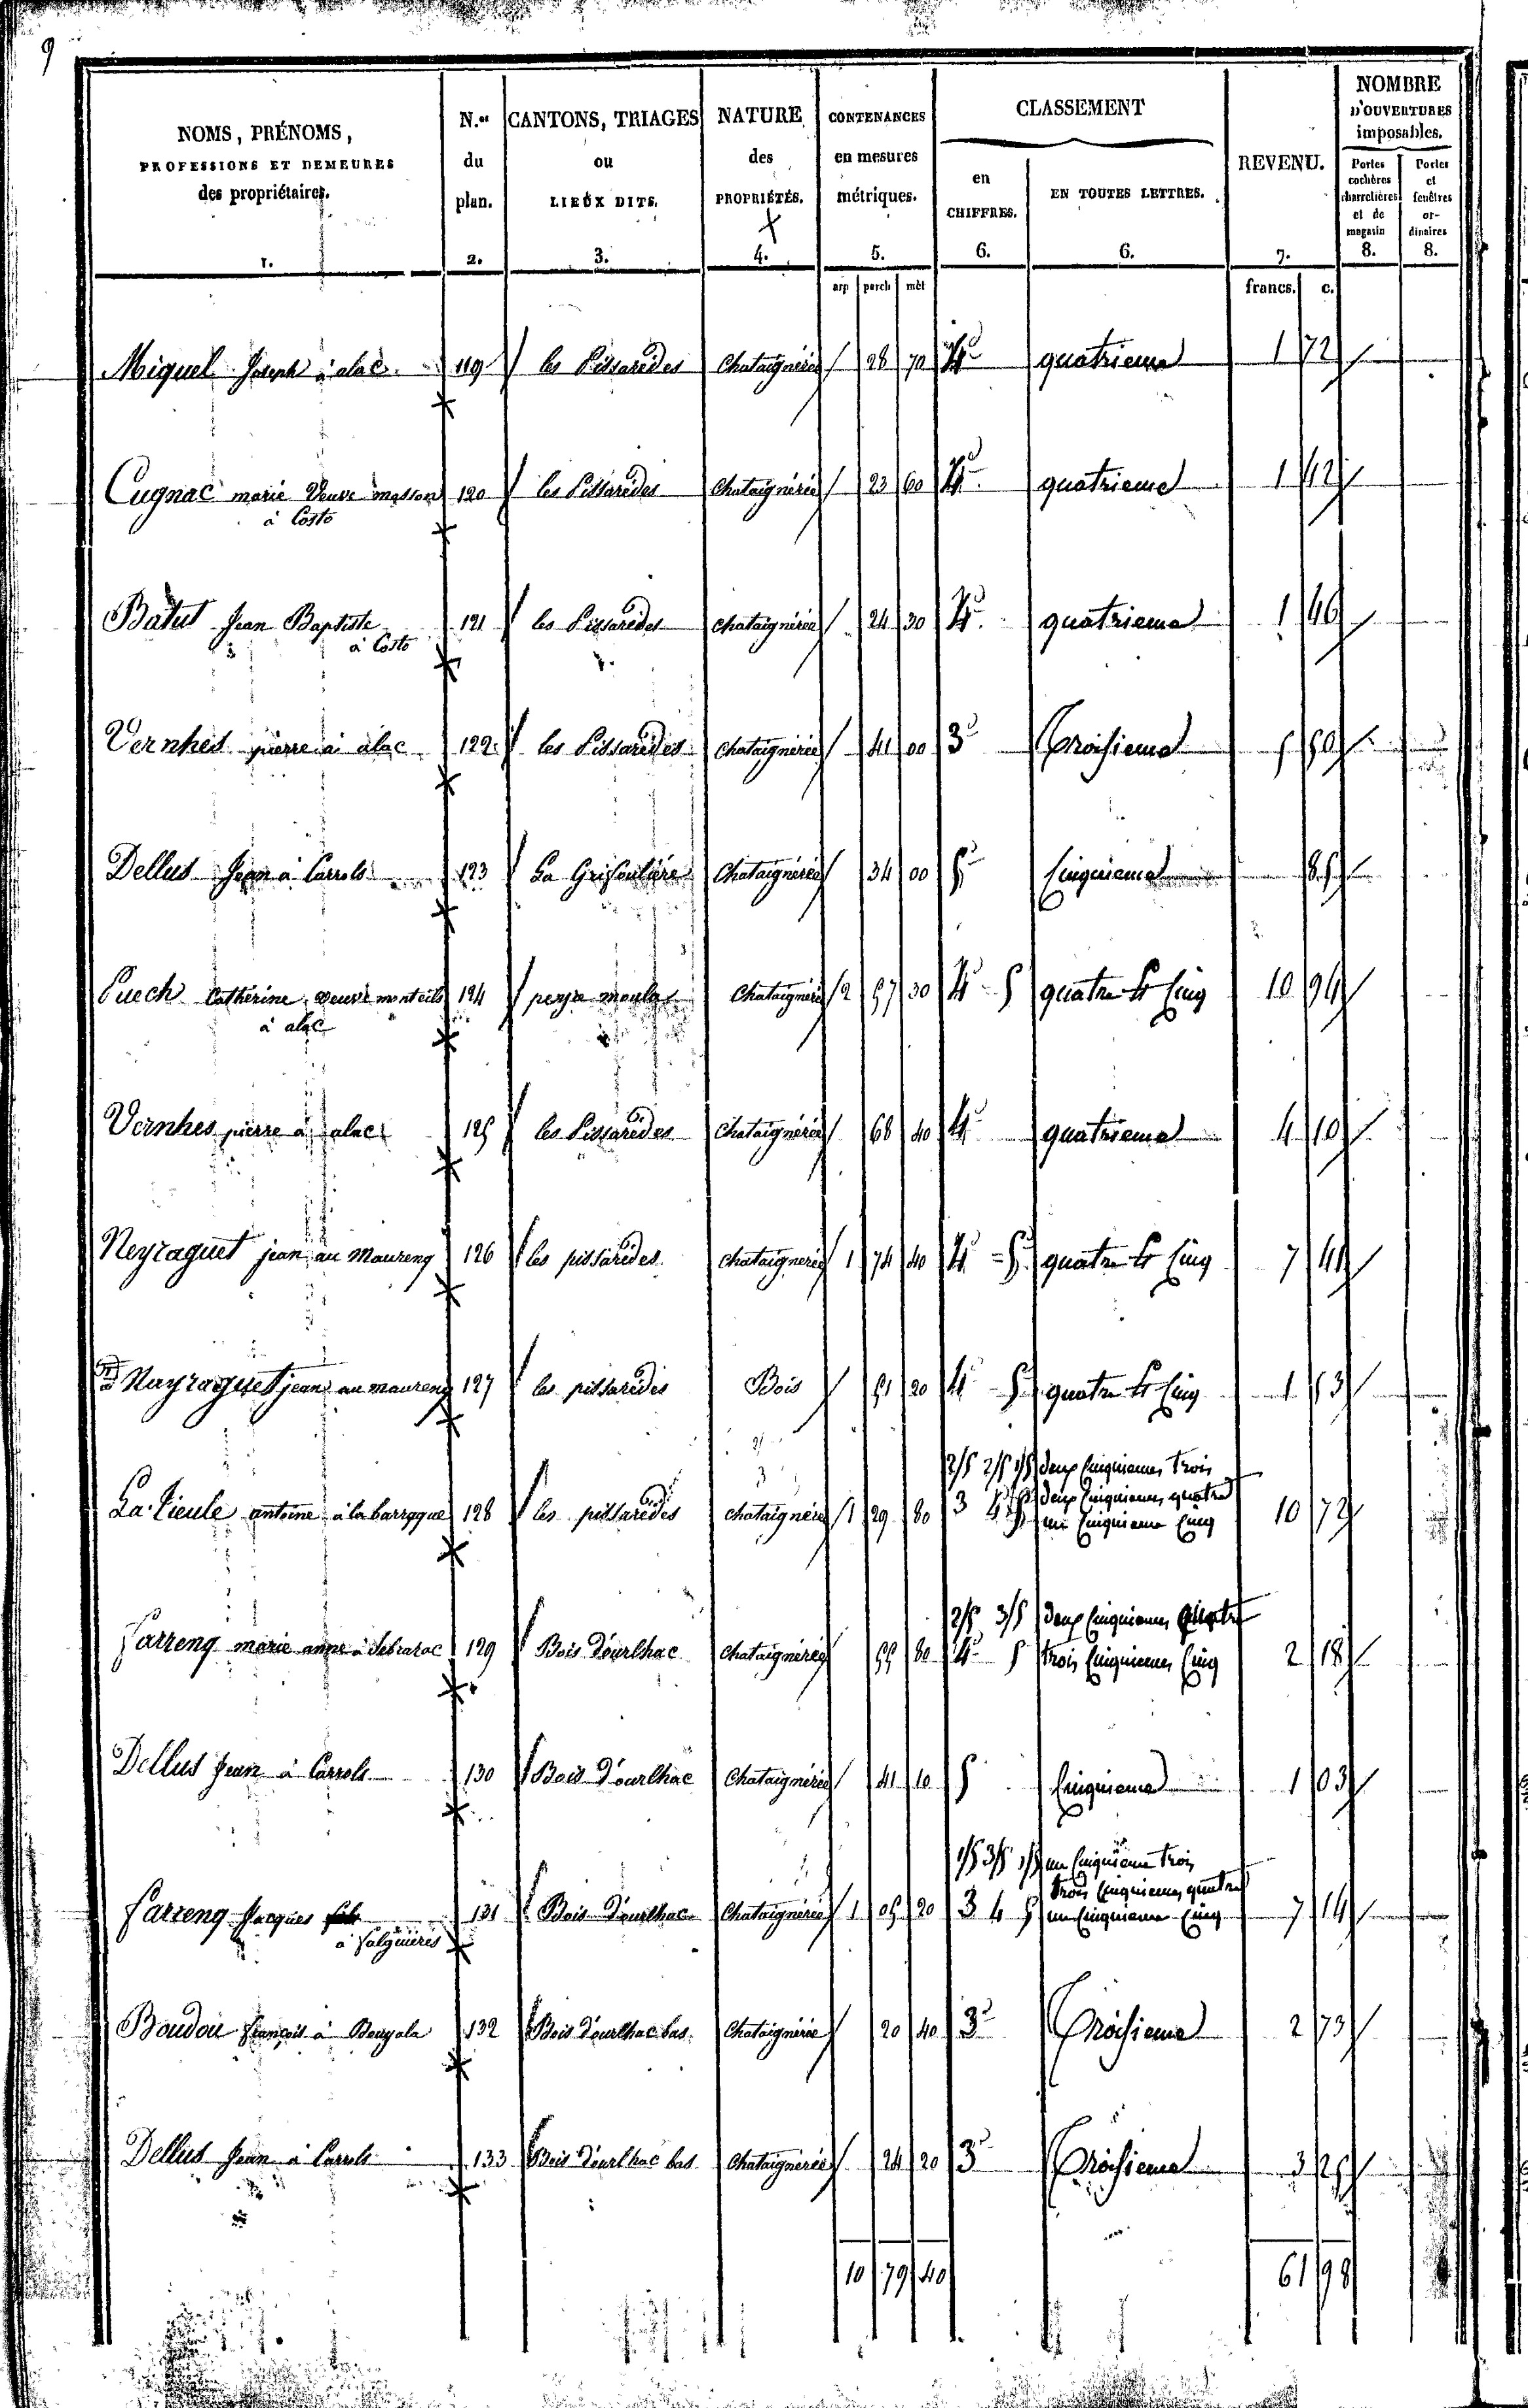 9
NOMS, PRÉNOMS, PROFESSIONS ET DEMEURES des propriétaires. 1.
N.os du plan. 2.
CANTONS, TRIAGES ou LIEUX DITS. 3.
NATURE des PROPRIÉTÉS. 4.
CONTENANCES en mesures métriques. 5.
CLASSEMENT
en CHIFFRES. 6.
EN TOUTES LETTRES. 6.
REVENU. 7.
NOMBRE D'OUVERTURES imposables.
Portes cochères charretières et de magasin 8.
Portes et fenêtres ordinaires 8.
arp perch mèt francs. c.
Miquel Joseph à alac 119 les Pissaredes Chataigneréé 28 70 4e quatrieme 1 72
Cugnac marie Veuve masson 120 les Pissaredes Chataigneréé 23 60 4e quatrieme 1 42
à Costo
Batut Jean Baptiste 121 les Pissaredes chataigneréé 24 30 4e quatrieme 1 46
à Costo
Vernhes pierre à alac 122 les Pissaredes chataigneréé 41 00 3e troisieme 5 50
Dellus Jean à Carrols 123 La Chataigneréé 34 00 5e Cinquieme 85
Puech Catherine veuve monteils 124 Chataigneréé 2 57 30 4e 5 quatre & Cinq 10 94
à alac
Vernhes pierre à alac 125 les Pissaredes Chataigneréé 68 40 4e quatrieme 4 10
Neyraguet jean au Maureng 126 les pissaredes chataigneréé 1 74 40 4e 5e quatre & Cinq 7 41
Nayraguet jean au maureng 127 les pissaredes Bois 51 20 4e 5 quatre & Cinq 1 53
2/5 2/5 1/5 deux Cinquiemes trois
La Tieule antoine à la barraque 128 les pissaredes chataigneréé 1 29 80 3 4 5 deux Cinquiemes quatre 10 72
un Cinquieme Cinq
2/5 3/5 deux Cinquiemes quatre
Farreng marie anne à 129 Bois d'ourlhac chataigneréé 55 80 4e 5 trois Cinquiemes Cinq 2 18
Dellus Jean à Carrols 130 Bois d'ourlhac Chataigneréé 41 10 5 Cinquieme 1 03
1/5 3/5 1/5 un Cinquieme trois
trois Cinquiemes quatre
Farreng Jacques 131 Bois d'ourlhac Chataigneréé 1 05 20 3 4 5 un Cinquieme Cinq 7 14
à falguieres
Boudou françois à 132 Bois d'ourlhac bas Chataigneréé 20 40 3e troisieme 2 73
Dellus Jean à Carrols 133 Bois d'ourlhac bas Chataigneréé 24 20 3e troisieme 3 25
10 79 40 61 98